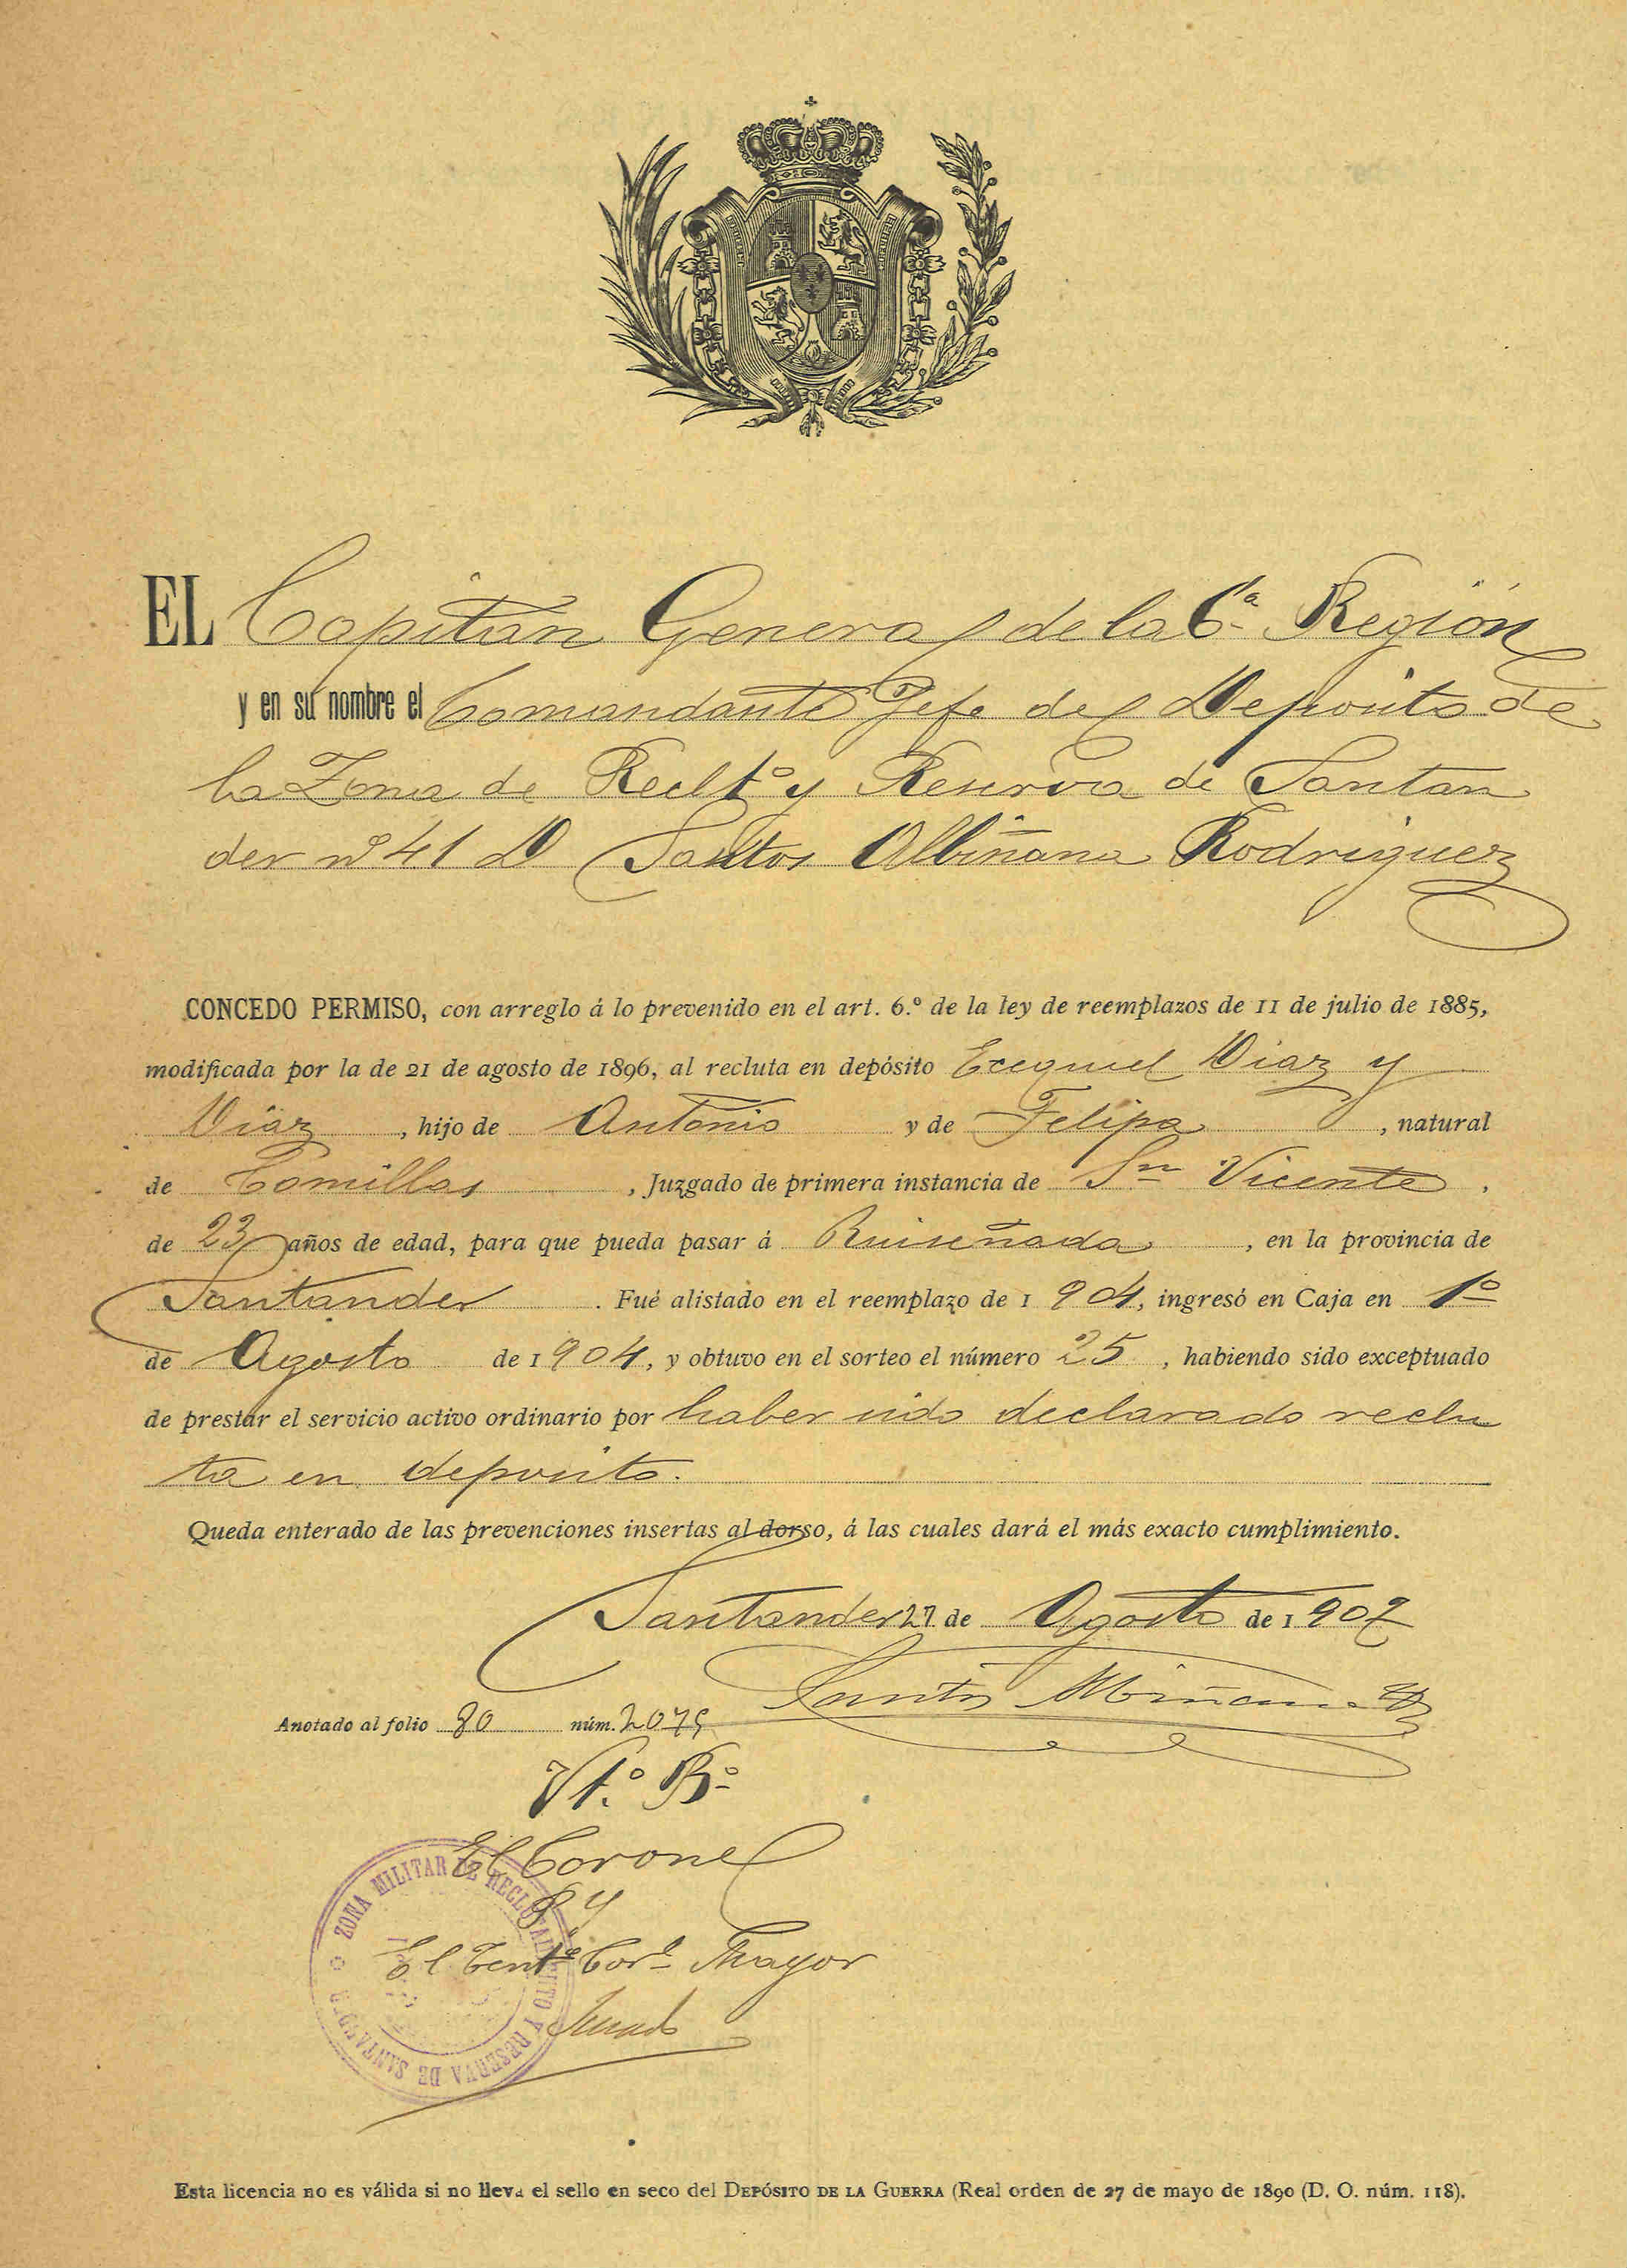 EL Capitan General de la 6ª Región
y en su nombre el Comandante Jefe del Deposito de
la Zona de Reclt.º y Reserva de Santan
der nº 41 D Santos Albiñana Rodriguez
CONCEDO PERMISO, con arreglo á lo prevenido en el art. 6.º de la ley de reemplazos de 11 de julio de 1885,
modificada por la de 21 de agosto de 1896, al recluta en depósito Exequiel Diaz y
Diaz, hijo de Antonio y de Felipa, natural
de Comillas, Juzgado de primera instancia de Sn Vicente,
de 23 años de edad, para que pueda pasar á Ruiseñada, en la provincia de
Santander. Fué alistado en el reemplazo de 1904, ingresó en Caja en 1º
de Agosto de 1904, y obtuvo en el sorteo el número 25, habiendo sido exceptuado
de prestar el servicio activo ordinario por haber sido declarado reclu
ta en deposito.
Queda enterado de las prevenciones insertas al dorso, á las cuales dará el más exacto cumplimiento.
Santander 27 de Agosto de 1907
Santos Albiñana
Anotado al folio 80 núm. 2075
Vt.º B.º
El Coronel
El Tente Corl Mayor
ZONA MILITAR DE RECLUTAMIENTO Y RESERVA DE SANTANDER
Esta licencia no es válida si no lleva el sello en seco del DEPÓSITO DE LA GUERRA (Real orden de 27 de mayo de 1890 (D. O. núm. 118).